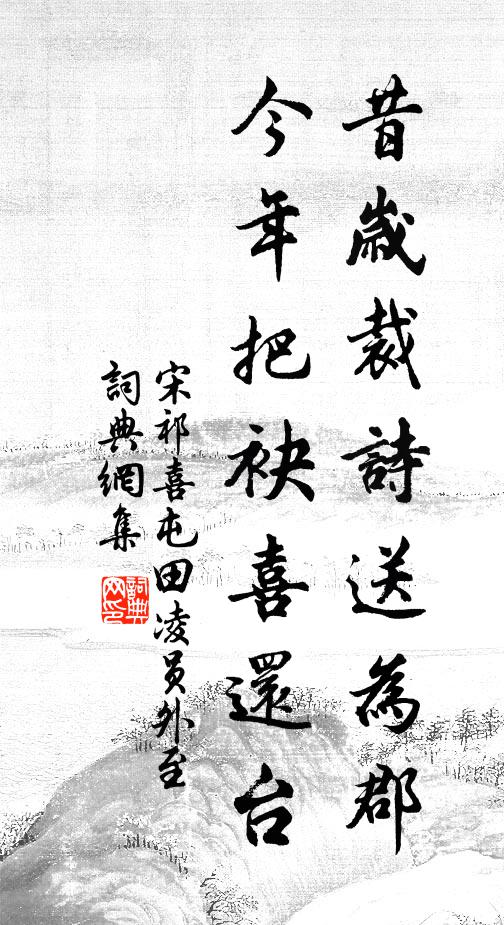 昔歲裁詩送為郡
今年把袂喜還台
宋祁喜屯田凌員外至
詞典網集
詞典網印